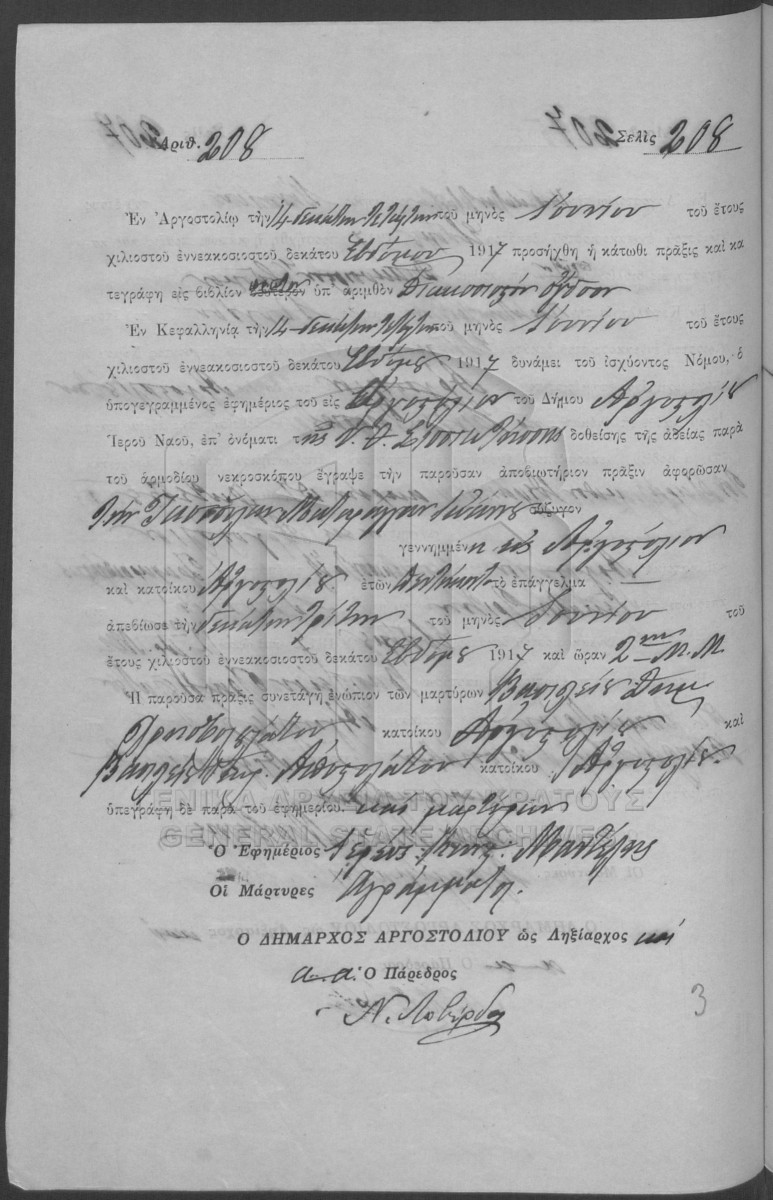 Ἀριθ. 208 Σελὶς 208
Ἐν Ἀργοστολίῳ τὴν 14 δεκάτην τετάρτην τοῦ μηνὸς Ἰουνίου τοῦ ἔτους
χιλιοστοῦ ἐννεακοσιοστοῦ δεκάτου Ἑβδόμου 1917 προσήχθη ἡ κάτωθι πρᾶξις καὶ κα
τεγράφη εἰς βιβλίον δεύτερον ὑπ' ἀριθμὸν Διακοσιοστὸν ὄγδοον
Ἐν Κεφαλληνίᾳ τὴν 14 δεκάτην τετάρτην τοῦ μηνὸς Ἰουνίου τοῦ ἔτους
χιλιοστοῦ ἐννεακοσιοστοῦ δεκάτου Ἑβδόμου 1917 δυνάμει τοῦ ἰσχύοντος Νόμου, ὁ
ὑπογεγραμμένος ἐφημέριος τοῦ εἰς Ἀργοστόλιον τοῦ Δήμου Ἀργοστολίου
Ἱεροῦ Ναοῦ, ἐπ' ὀνόματι τῆς Υ. Θ. Σισσιωτίσσης δοθείσης τῆς ἀδείας παρὰ
τοῦ ἁρμοδίου νεκροσκόπου ἔγραψε τὴν παροῦσαν ἀποβιωτήριον πρᾶξιν ἀφορῶσαν
Τὴν σύζυγον
γεννημμένη εἰς Ἀργοστόλιον
καὶ κατοίκου Ἀργοστολίου ἐτῶν τὸ ἐπάγγελμα —
ἀπεβίωσε τὴν Δεκάτην τρίτην τοῦ μηνὸς Ἰουνίου τοῦ
ἔτους χιλιοστοῦ ἐννεακοσιοστοῦ δεκάτου Ἑβδόμου 1917 καὶ ὥραν 2αν Μ. Μ.
Ἡ παροῦσα πρᾶξις συνετάγη ἐνώπιον τῶν μαρτύρων Βασιλείου
κατοίκου Ἀργοστολίου καὶ
κατοίκου Ἀργοστολίου.
ὑπεγράφη δὲ παρὰ τοῦ ἐφημερίου. καὶ μαρτύρων
ΓΕΝΙΚΑ ΑΡΧΕΙΑ ΤΟΥ ΚΡΑΤΟΥΣ
GENERAL STATE ARCHIVES
Ὁ Ἐφημέριος Ἱερεὺς
Οἱ Μάρτυρες Ἀγράμματοι.
Ὁ ΔΗΜΑΡΧΟΣ ΑΡΓΟΣΤΟΛΙΟΥ ὡς Ληξίαρχος καὶ
α.α. Ὁ Πάρεδρος
Ν. Λοβέρδος
3